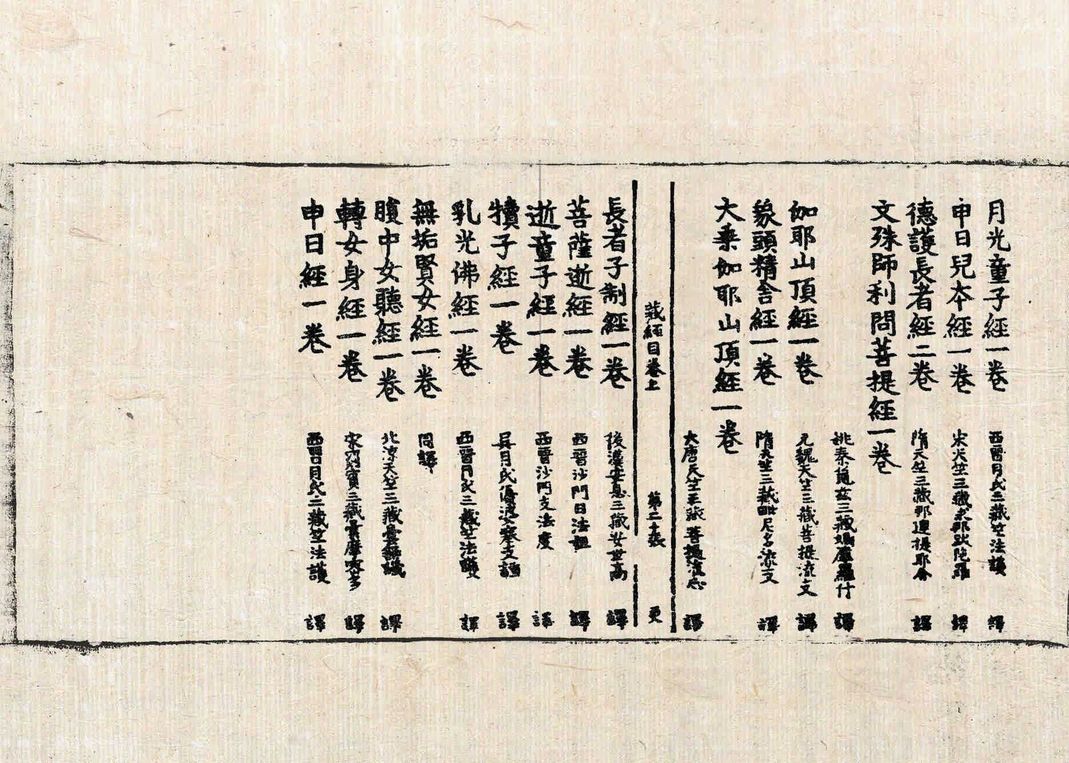 月光童子經一卷 西晉月氏三藏竺法護 譯
申日兒本經一卷 宋天竺三藏求那跋陀羅 譯
德護長者經二卷 隋天竺三藏那連提耶舍 譯
文殊師利問菩提經一卷 姚秦龜茲三藏鳩摩羅什 譯
伽耶山頂經一卷 元魏天竺三藏菩提流支 譯
象頭精舍經一卷 隋天竺三藏毗尼多流支 譯
大乘伽耶山頂經一卷 大唐天竺三藏菩提流志 譯
藏經目卷上 第二十張 更
長者子制經一卷 後漢安息三藏安世高 譯
菩薩逝經一卷 西晉沙門白法祖 譯
逝童子經一卷 西晉沙門支法度 譯
犢子經一卷 吳月氏優婆塞支謙 譯
乳光佛經一卷 西晉月氏三藏竺法護 譯
無垢賢女經一卷 同譯
腹中女聽經一卷 北涼天竺三藏曇無讖 譯
轉女身經一卷 宋罽賓三藏曇摩蜜多 譯
申日經一卷 西晉月氏三藏竺法護 譯